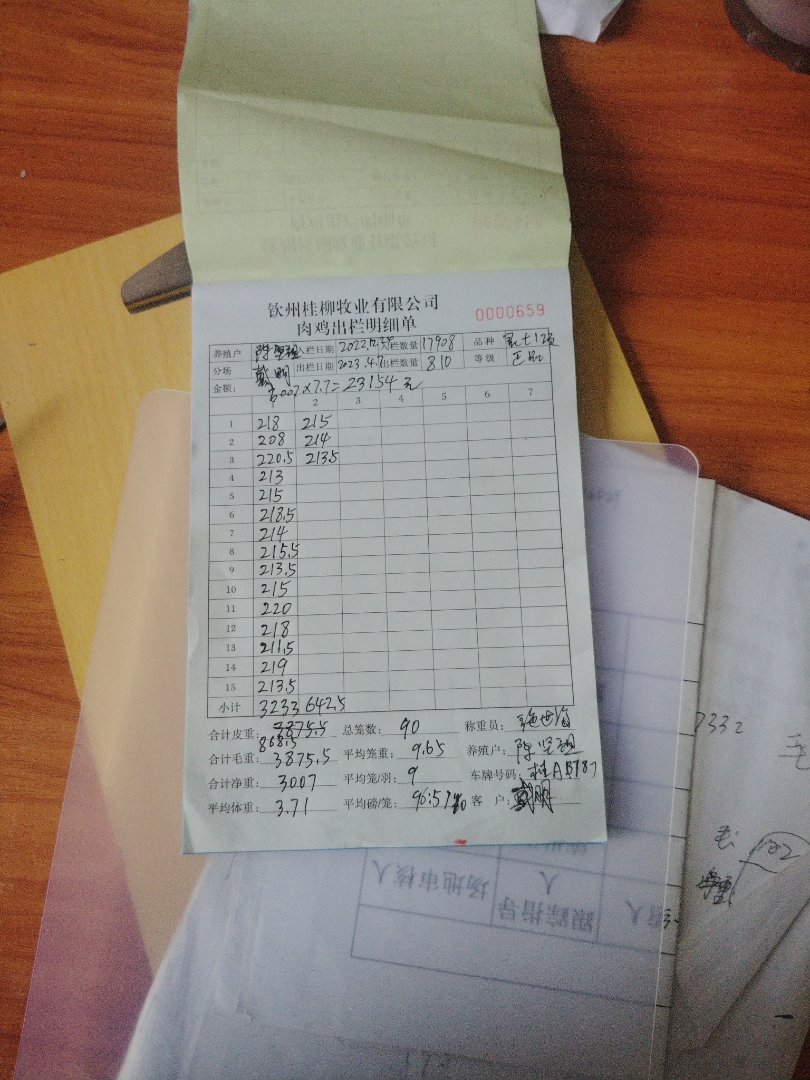 钦州桂柳牧业有限公司
肉鸡出栏明细单
0000659
养殖户 陈坚祖 入栏日期 2022.12. 入栏数量 17908 品种
分场 戴明 出栏日期 2023.4.7 出栏数量 810 等级
金额: 3007×7.7=23154元
1 2 3 4 5 6 7
1 218 215
2 208 214
3 220.5 213.5
4 213
5 215
6 218.5
7 214
8 215.5
9 213.5
10 215
11 220
12 218
13 211.5
14 219
15 213.5
小计 3233 642.5
合计皮重: 3875.5 868.5 总笼数: 90 称重员:
合计毛重: 3875.5 平均笼重: 9.65 养殖户: 陈坚祖
合计净重: 3007 平均笼/羽: 9 车牌号码:
平均体重: 3.71 平均磅/笼: 客 户:
7332
毛
毛:
102
场地审核人
跟踪指导人